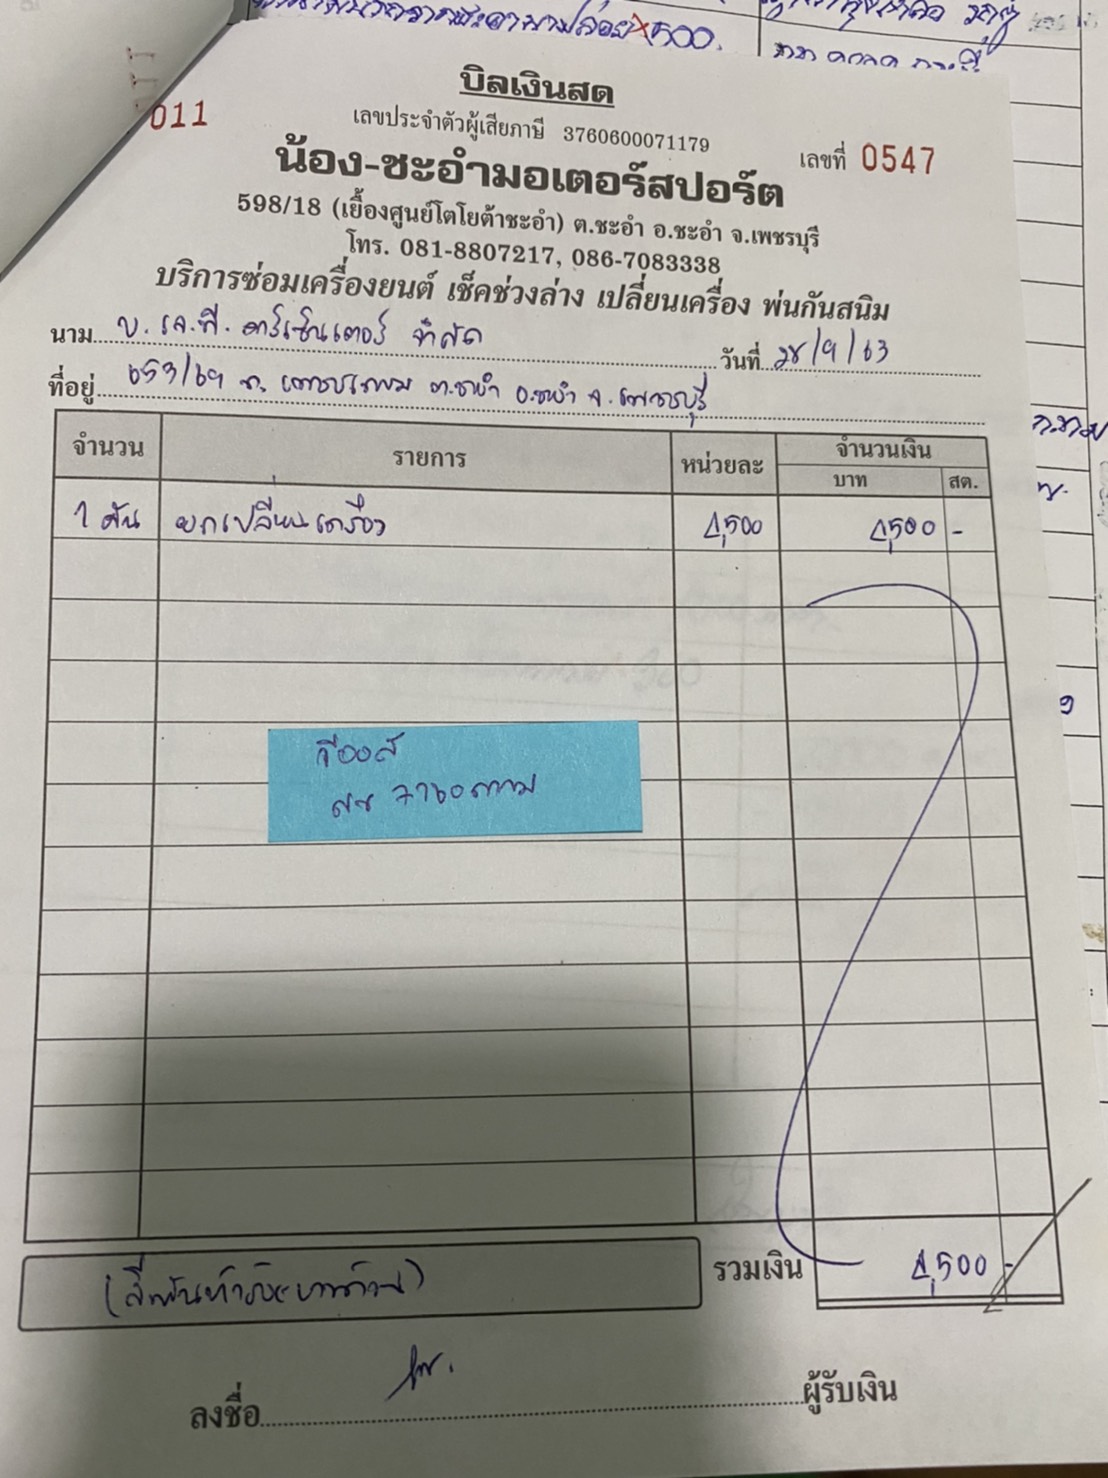 500.
บิลเงินสด
011
เลขประจำตัวผู้เสียภาษี 3760600071179
เลขที่ 0547
น้อง-ชะอำมอเตอร์สปอร์ต
598/18 (เยื้องศูนย์โตโยต้าชะอำ) ต.ชะอำ อ.ชะอำ จ.เพชรบุรี
โทร. 081-8807217, 086-7083338
บริการซ่อมเครื่องยนต์ เช็คช่วงล่าง เปลี่ยนเครื่อง พ่นกันสนิม
นาม บ. เจ.พี. คาร์เซ็นเตอร์ จำกัด วันที่ 28/9/63
ที่อยู่ 653/69 ถ. เพชรเกษม ต.ชะอำ อ.ชะอำ จ.เพชรบุรี
จำนวน รายการ หน่วยละ จำนวนเงิน
บาท สต.
1 คัน ยกเปลี่ยนเครื่อง 4,500 4,500 -
รวมเงิน 4,500 -
(สี่พันห้าร้อยบาทถ้วน)
ลงชื่อ ผู้รับเงิน